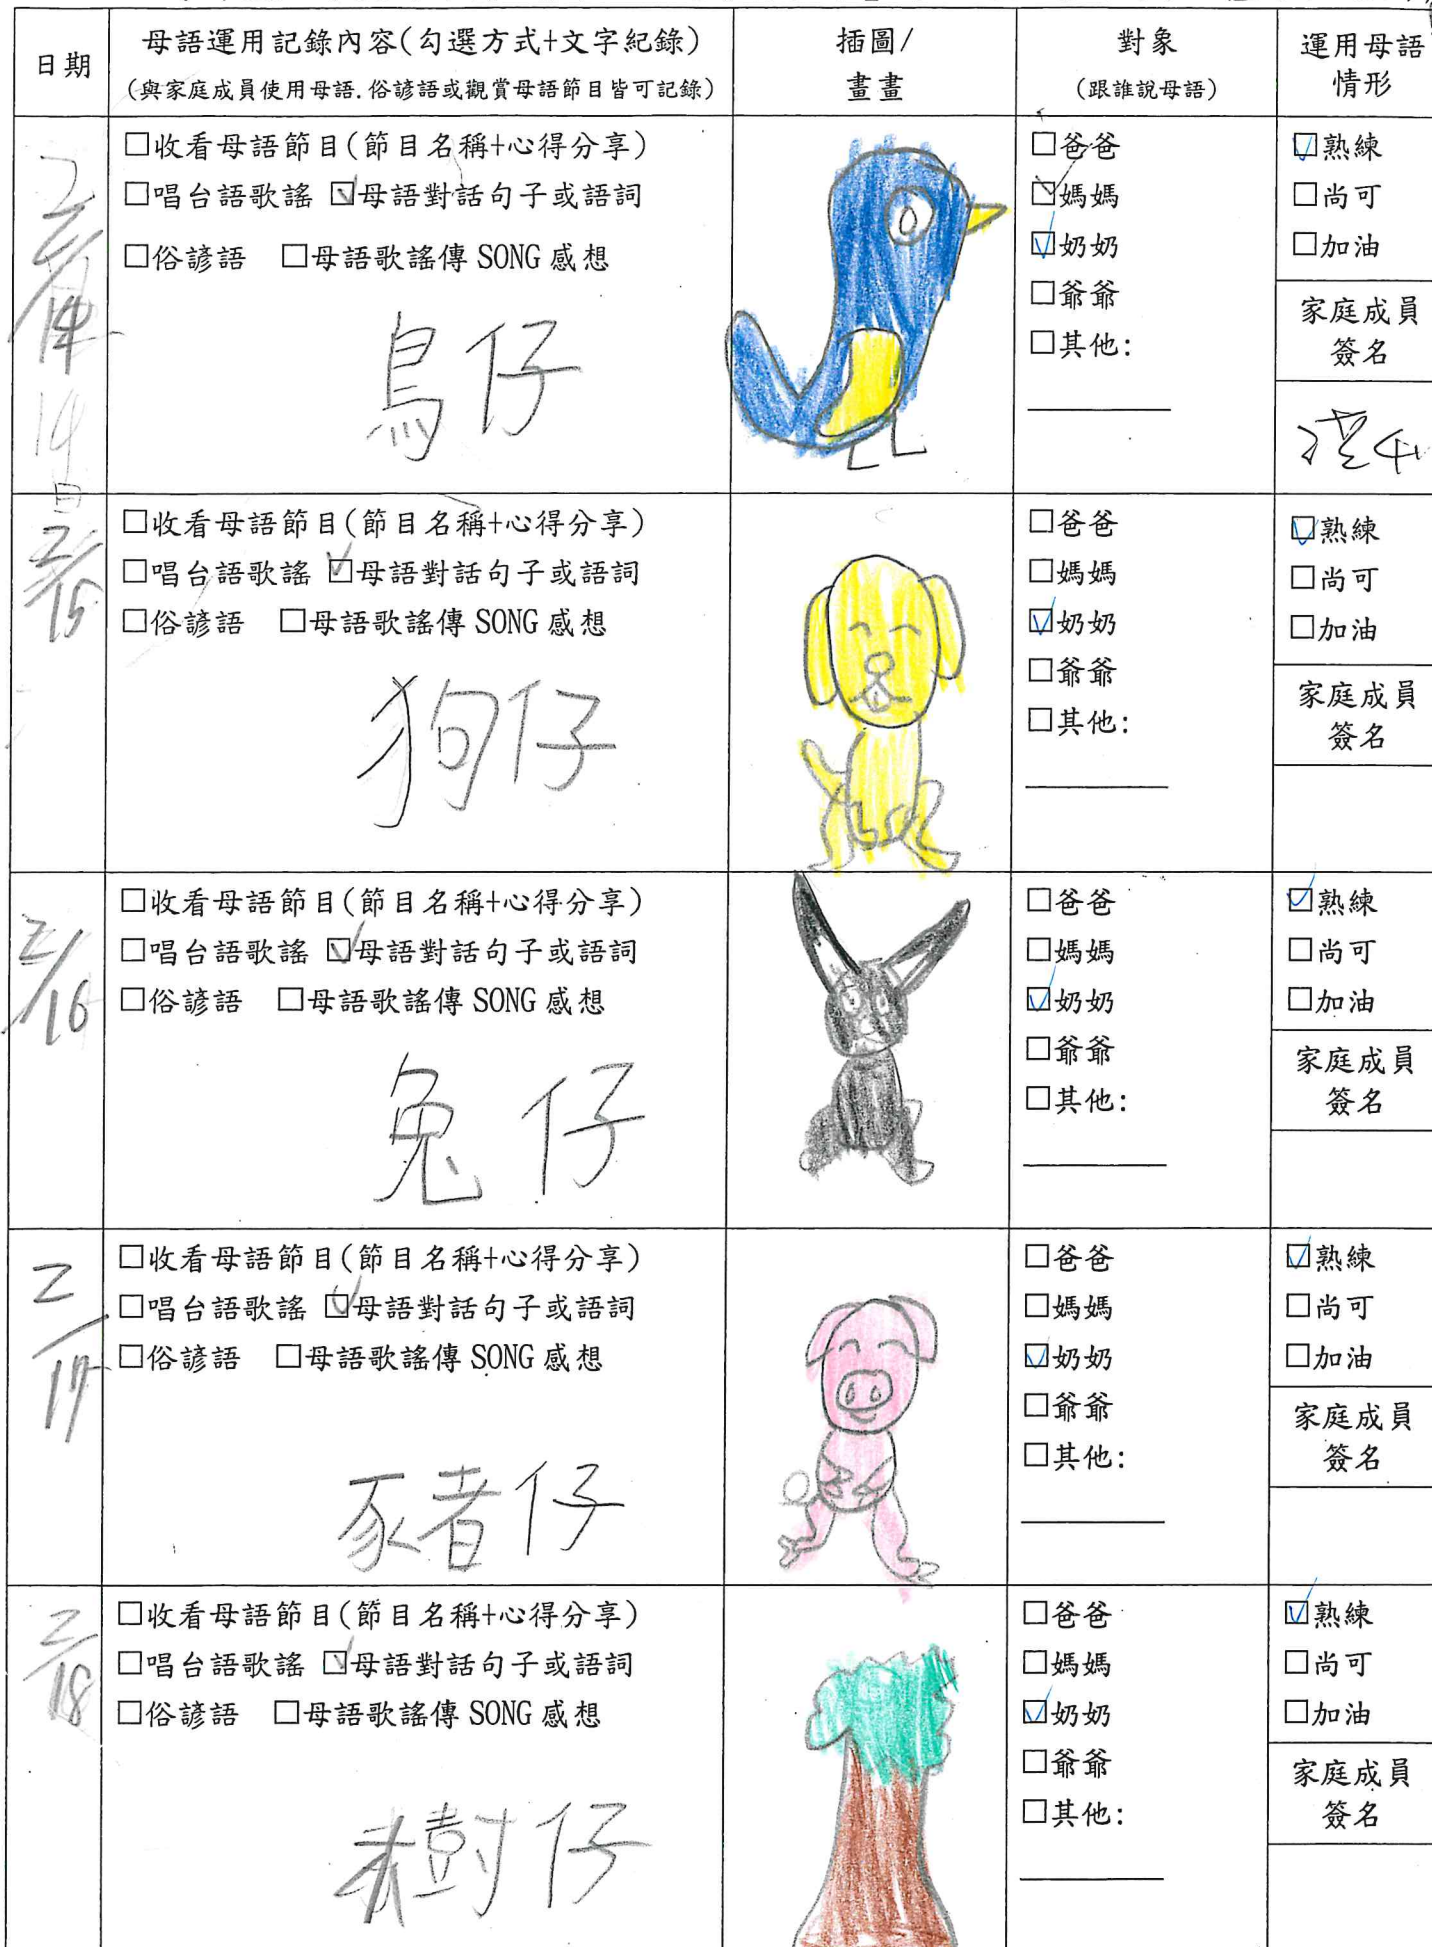 日期
母語運用記錄內容(勾選方式+文字紀錄)
(與家庭成員使用母語.俗諺語或觀賞母語節目皆可記錄)
插圖/
畫畫
對象
(跟誰說母語)
運用母語
情形
2/14
14
日
□收看母語節目(節目名稱+心得分享)
□唱台語歌謠 ☑母語對話句子或語詞
□俗諺語 □母語歌謠傳 SONG 感想
鳥仔
□爸爸
□媽媽
☑奶奶
□爺爺
□其他:
☑熟練
□尚可
□加油
家庭成員
簽名
2/15
□收看母語節目(節目名稱+心得分享)
□唱台語歌謠 ☑母語對話句子或語詞
□俗諺語 □母語歌謠傳 SONG 感想
狗仔
□爸爸
□媽媽
☑奶奶
□爺爺
□其他:
☑熟練
□尚可
□加油
家庭成員
簽名
2/16
□收看母語節目(節目名稱+心得分享)
□唱台語歌謠 ☑母語對話句子或語詞
□俗諺語 □母語歌謠傳 SONG 感想
兔仔
□爸爸
□媽媽
☑奶奶
□爺爺
□其他:
☑熟練
□尚可
□加油
家庭成員
簽名
2/17
□收看母語節目(節目名稱+心得分享)
□唱台語歌謠 ☑母語對話句子或語詞
□俗諺語 □母語歌謠傳 SONG 感想
豬仔
□爸爸
□媽媽
☑奶奶
□爺爺
□其他:
☑熟練
□尚可
□加油
家庭成員
簽名
2/18
□收看母語節目(節目名稱+心得分享)
□唱台語歌謠 ☑母語對話句子或語詞
□俗諺語 □母語歌謠傳 SONG 感想
樹仔
□爸爸
□媽媽
☑奶奶
□爺爺
□其他:
☑熟練
□尚可
□加油
家庭成員
簽名